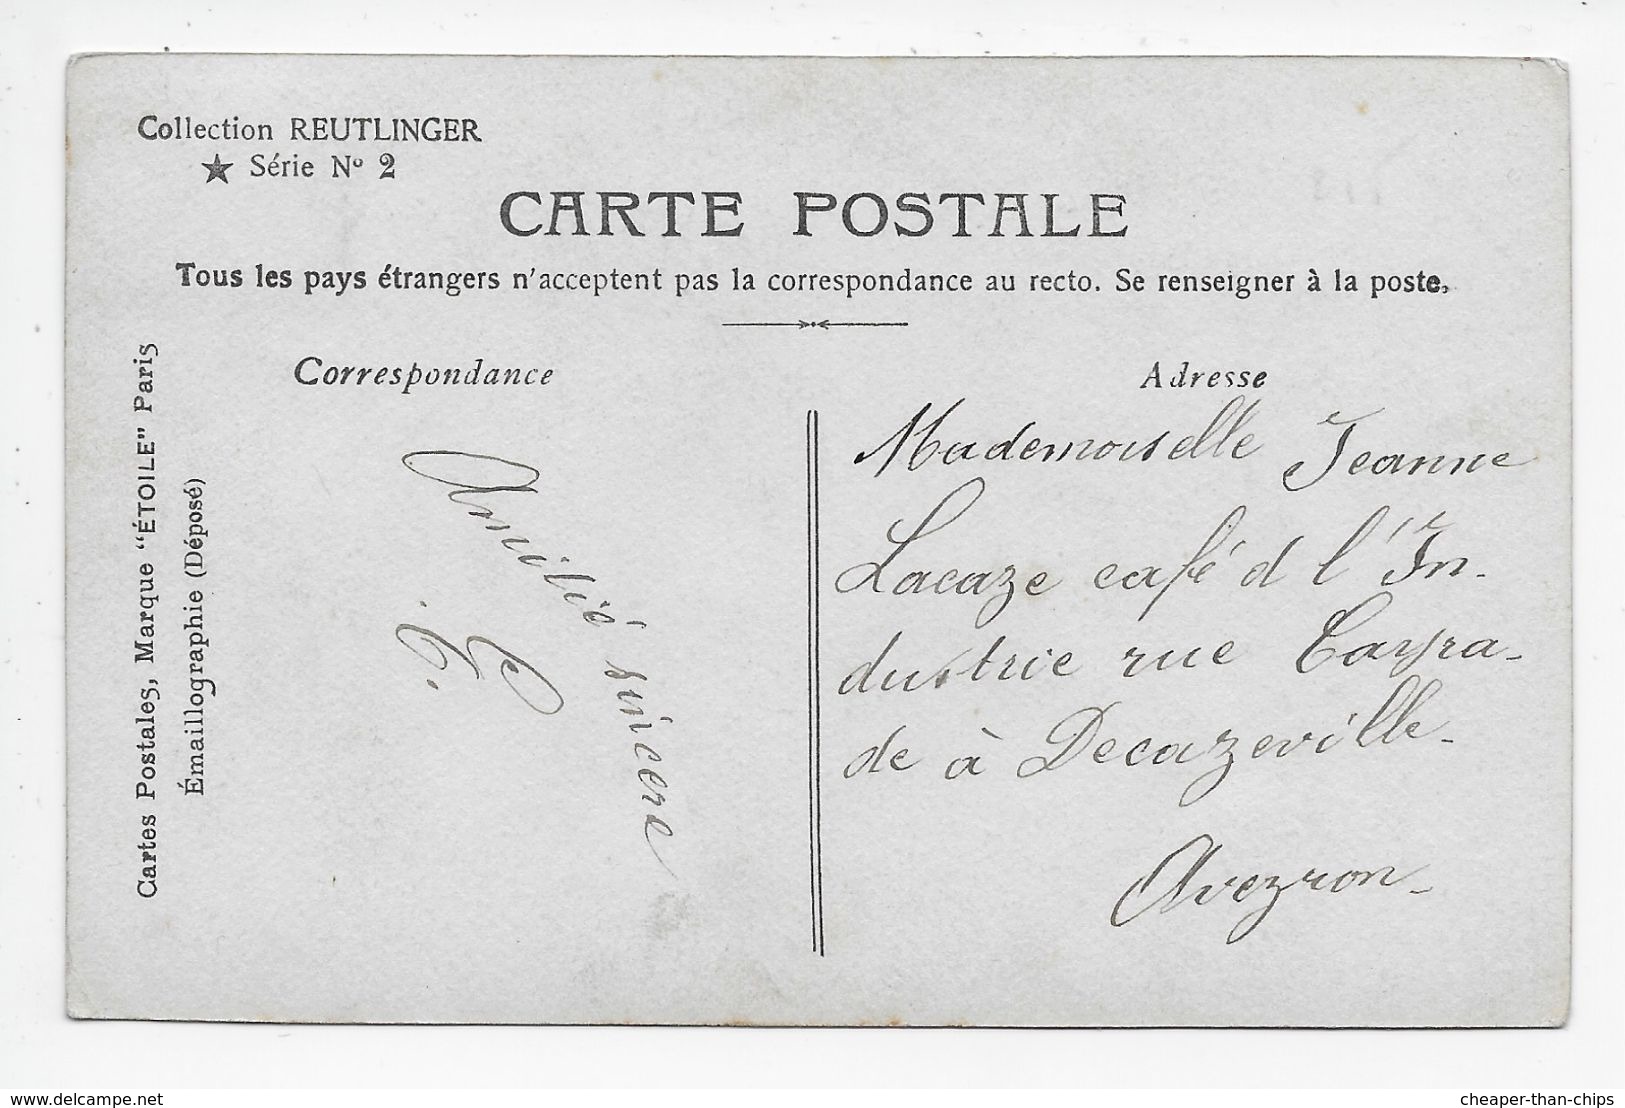 Collection REUTLINGER
★ Série Nº 2
CARTE POSTALE
Tous les pays étrangers n'acceptent pas la correspondance au recto. Se renseigner à la poste,
Correspondance
Adresse
Cartes Postales, Marque "ÉTOILE" Paris
Émaillographie (Déposé)
Amitié sincere
Mademoiselle Jeanne
Lacaze café d l'In-
dustrie rue Cayra-
de à Decazeville-
Aveyron-
delcampe.net
cheaper-than-chips